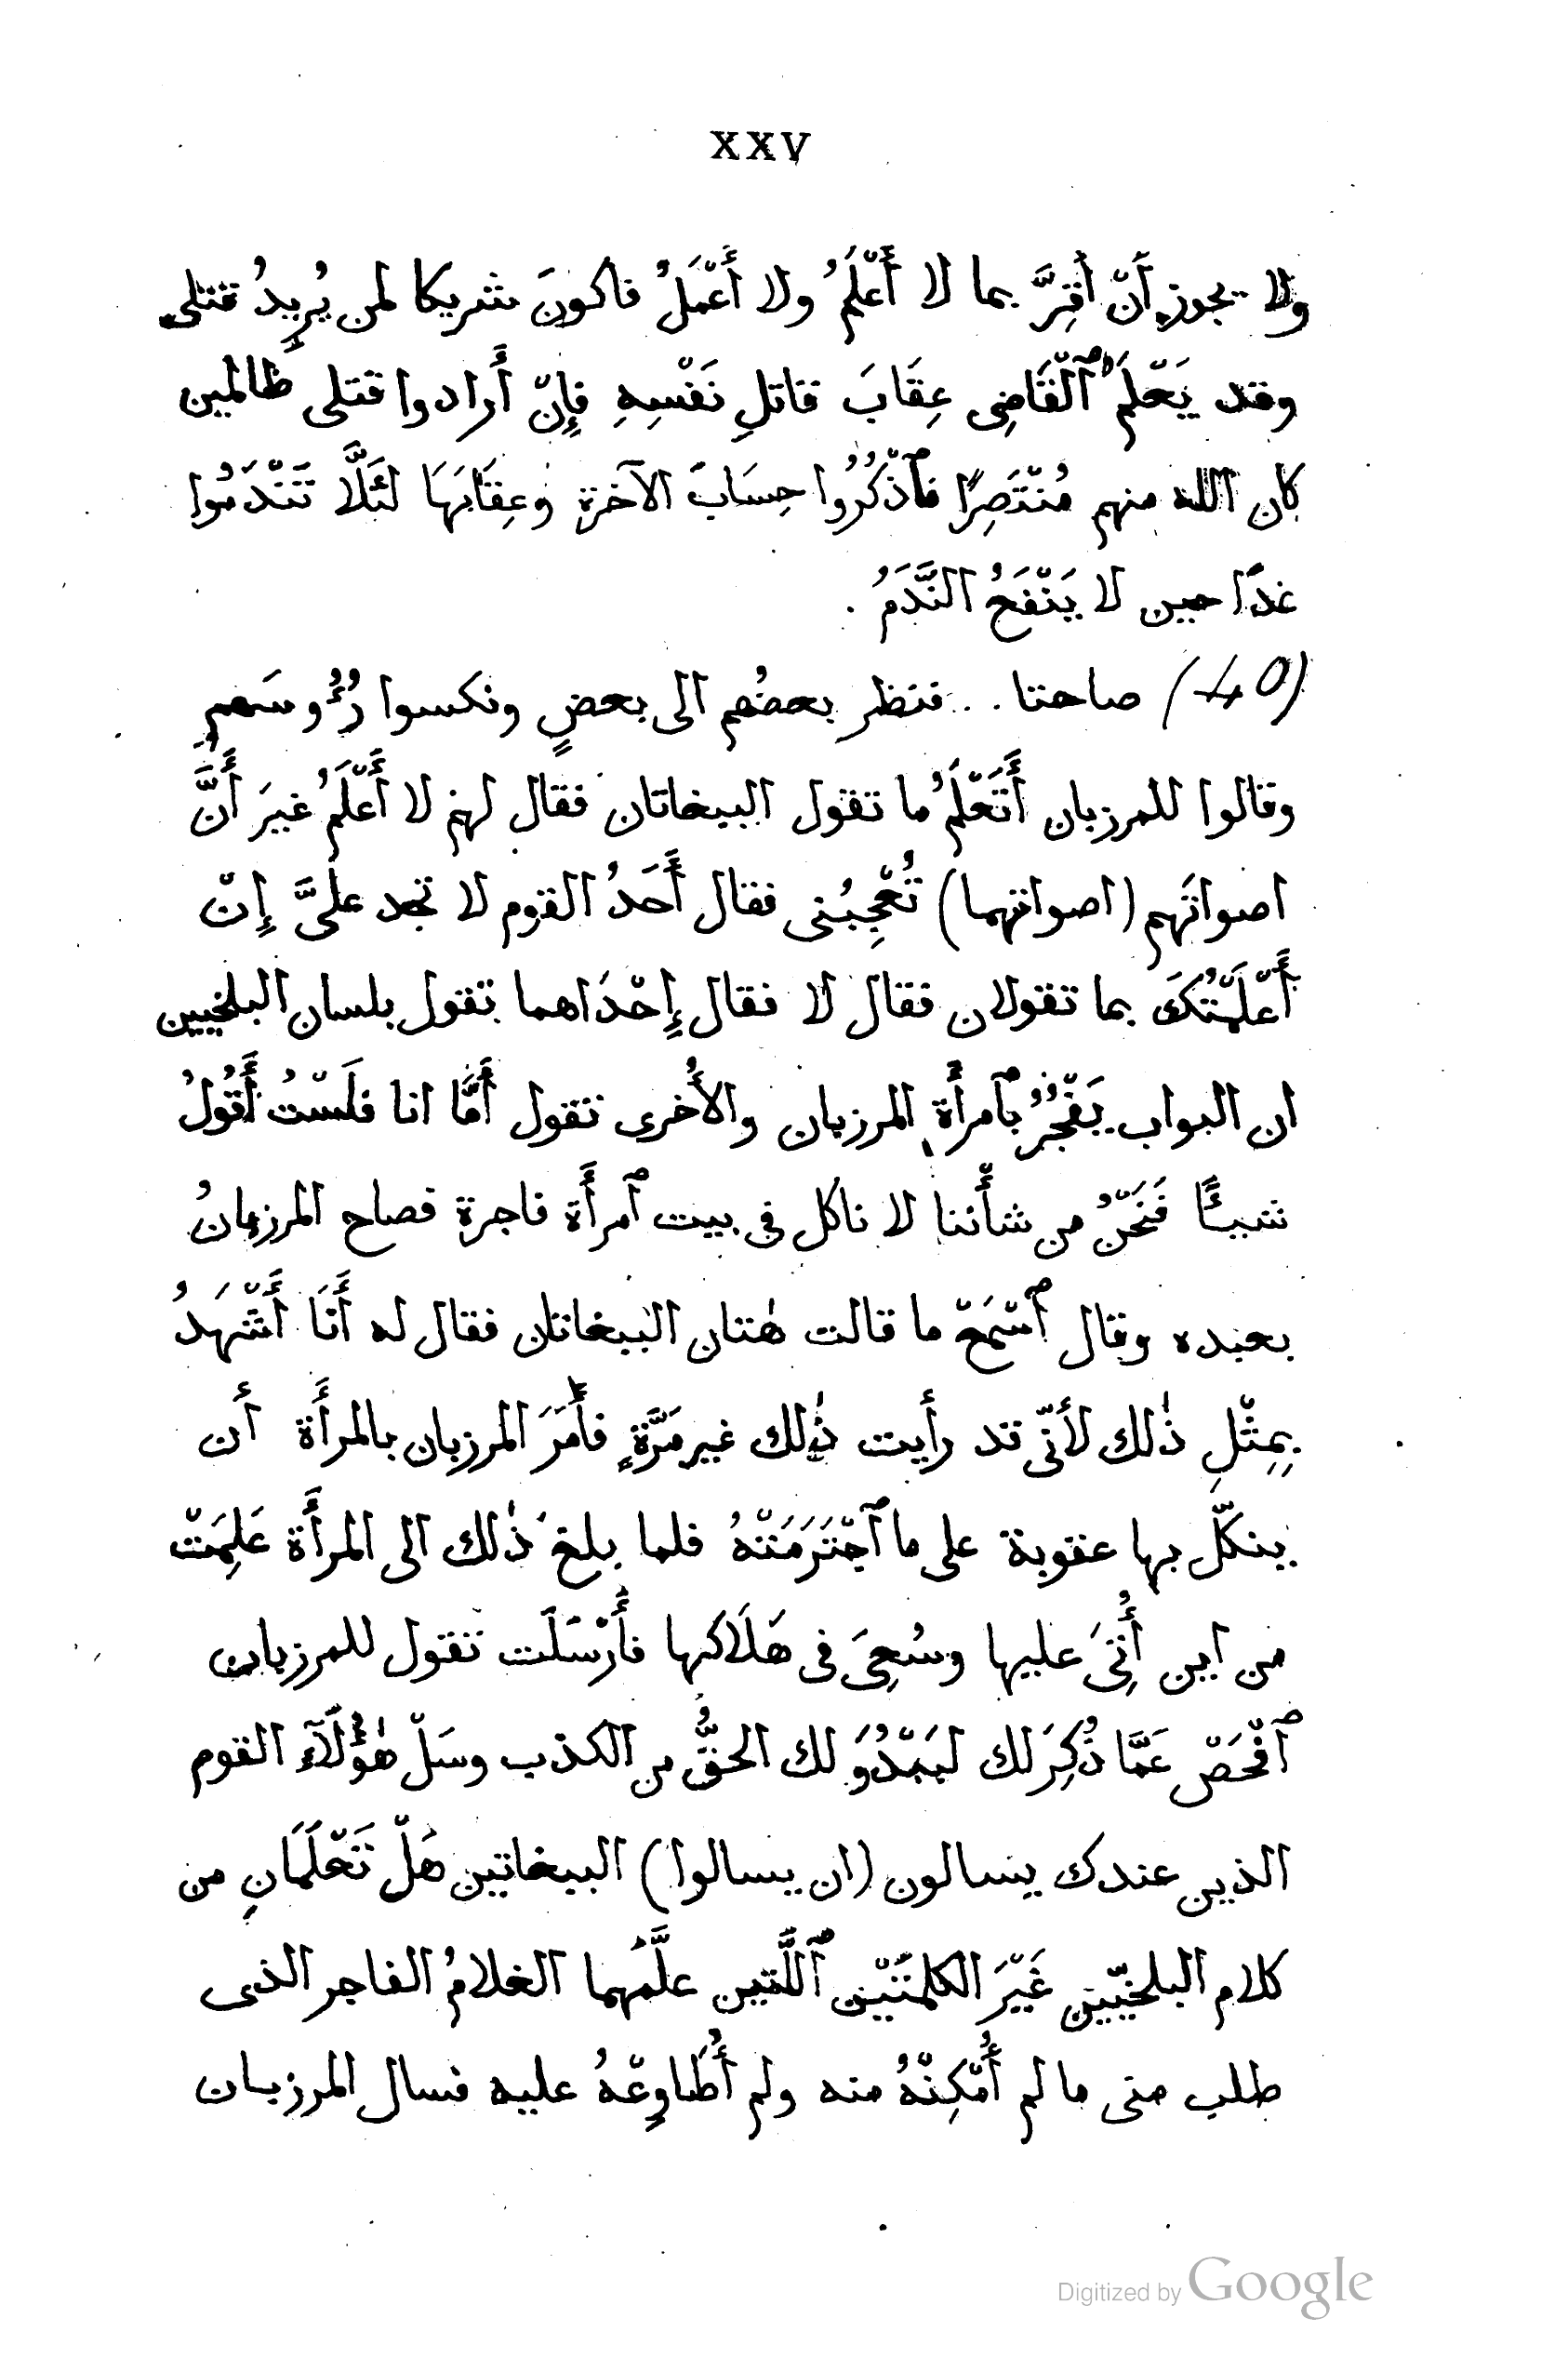 XXV
ولا يجوز أَنْ أُقِرَّ بما لا أَعْلَمُ ولا أَعْمَلُ فاكونَ شريكا لمن يُرِيدُ قتلى
وقد يَعْلَمُ ٱلْقَاضِى عِقَابَ قاتلِ نَفْسِهِ فإِنْ أَرادوا قتلى ظالمين
كان الله منهم مُنْتَصِرًا فٱذْكُرُوا حِسَابَ الآخرة وعِقَابَهَا لئَلَّا تَنْدَمُوا
غدًا حين لا يَنْفَعُ النَّدَمُ .
(40) صاحتا .. فنظر بعضُهم الى بعضٍ ونكسوا رُؤُوسَهم
وقالوا للمرزبان أَتَعْلَمُ ما تقول الببغاتان فقال لهم لا أَعْلَمُ غيرَ أَنَّ
اصواتَهم (اصواتهما) تُعْجِبُنى فقال أَحَدُ القوم لا تجد علىَّ إِنْ
أَعْلَمْتُكَ بما تقولان فقال لا فقال إِحْدَاهما تقول بلسان البلخيين
ان البواب يَفْجُرُ بٱمرأَة المرزبان والأُخرى تقول أَمَّا انا فلَسْتُ أَقُولُ
شيـًٔا فَنَحْنُ من شأْننا لا ناكل فى بيت ٱمرأَة فاجرة فصاح المرزبانُ
بعبده وقال ٱسْمَعْ ما قالت هٰتان الببغاتان فقال له أَنَا أَشْهَدُ
بِمِثْلِ ذٰلك لأَنّى قد رأيت ذٰلك غير مَرَّةٍ فأَمَرَ المرزبان بالمرأَة أَن
ينكّل بها عقوبة على ما ٱجْتَرَمَتْهُ فلما بلغ ذٰلك الى المرأَة عَلِمَتْ
من اين أُتِىَ عليها وسُعِىَ فى هَلَاكها فأَرْسَلَت تقول للمرزبان
ٱفْحَصْ عَمَّا ذُكِرَ لك ليَبْدُوَ لك الحقُّ من الكذب وسَلْ هٰؤُلَآءِ القوم
الذين عندك يسالون (ان يسالوا) الببغاتين هَلْ تَعْلَمَانِ من
كلام البلخيّين غَيْرَ الكلمَتَيْن ٱللَّتين علَّمَهما الغلامُ الفاجر الذى
طلب منى ما لم أُمْكِنْهُ منه ولم أُطَاوِعْهُ عليه فسال المرزبان
Digitized by Google